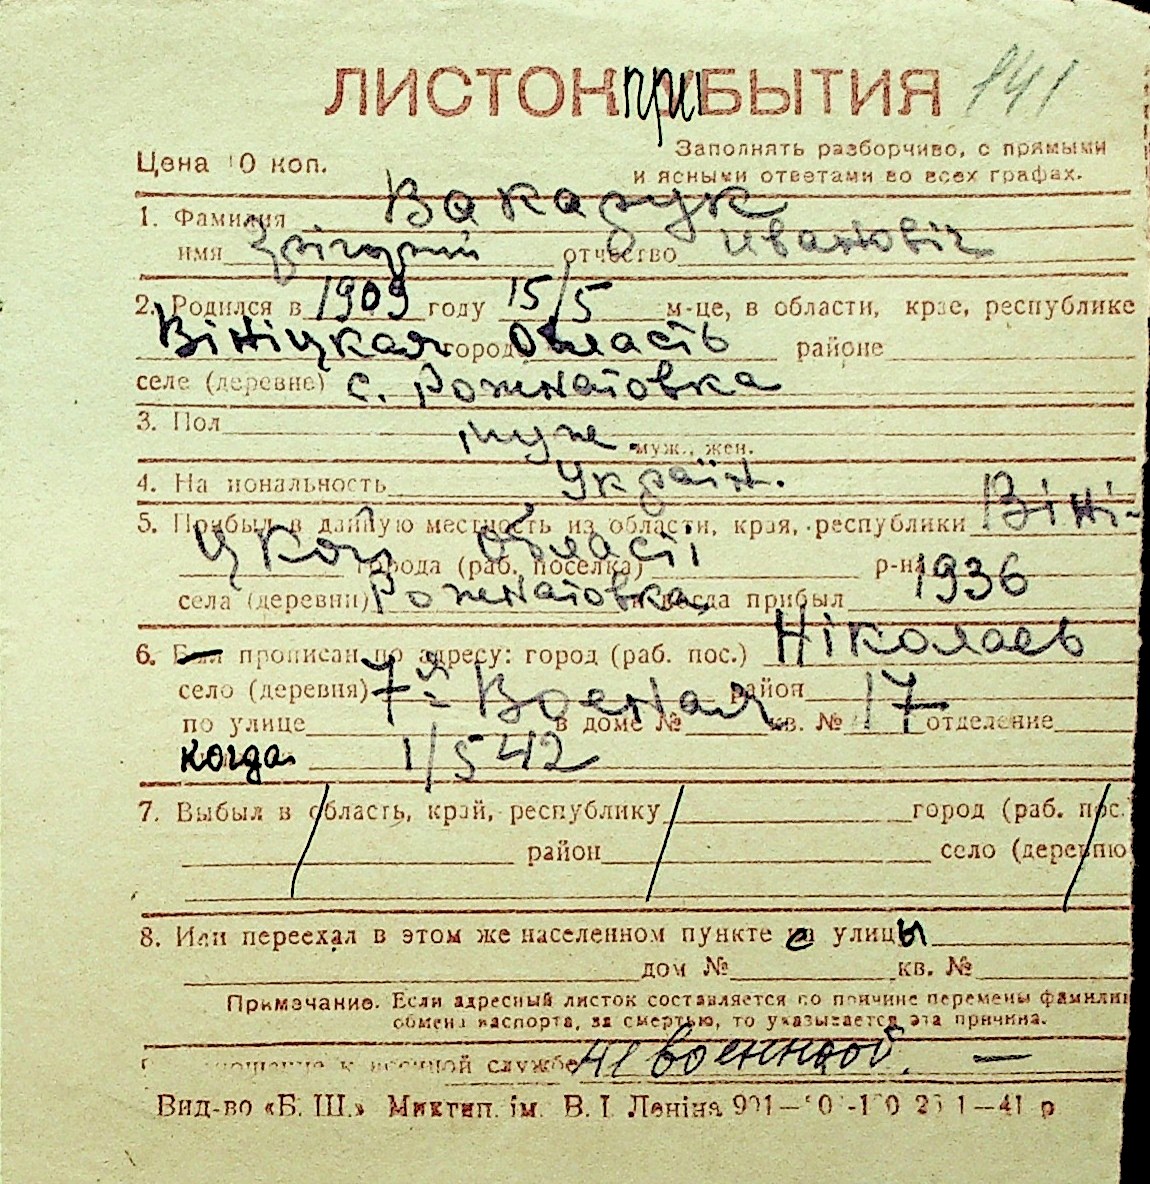 ЛИСТОК ПРИБЫТИЯ 141
Цена 10 коп.
Заполнять разборчиво, с прямыми
и ясными ответами во всех графах.
1. Фамилия Вакарук
имя Григорий отчество Ивановіч
2. Родился в 1909 году 15/5 м-це, в области, крае, республике
Вініцкая город область районе
селе (деревне) с. Рожнатовка
3. Пол муж. муж., жен.
4. Национальность Україн.
5. Прибыл в данную местность из области, края, республики Віні-
цкой області города (раб. поселка) р-на 1936
села (деревни) Рожнатовка, и когда прибыл
6. Был прописан по адресу: город (раб. пос.) Ніколаев
село (деревня) 7-я Военая район 17
по улице в доме № кв. № отделение
когда 1/5 42
7. Выбыл в область, край, республику город (раб. пос.)
район село (деревню
8. Или переехал в этом же населенном пункте с улицы
дом № кв. №
Примечание. Если адресный листок составляется по причине перемены фамилии
обмена паспорта, за смертью, то указывается эта причина.
отношение к военной службе не военнообяз. —
Вид-во «Б. Ш.» Миктип. ім. В. І. Леніна